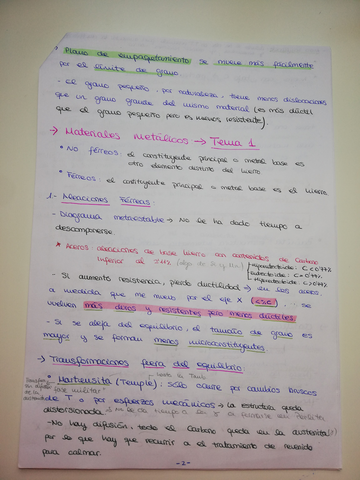 * Plano de empaquetamiento se mueve más fácilmente
por el límite de grano.
- El grano pequeño, por naturaleza, tiene menos dislocaciones
que un grano grande del mismo material (es más dúctil
que el grano pequeño pero es menos resistente).
→ Materiales metálicos → Tema 1
* No férreos: el constituyente principal o metal base es
otro elemento distinto del hierro
* Férreos: el constituyente principal o metal base es el hierro
1.- Aleaciones Férreas:
- Diagrama metaestable → No le ha dado tiempo a
descomponerse.
* Aceros: aleaciones de base hierro con contenidos de carbono
inferior al 2'11%
Hipoeutectoide: C < 0'77%
Eutectoide: C = 0'77%
- Si aumento resistencia, pierdo ductilidad → en los aceros
a medida que me muevo por el eje X (%C) se
vuelven más duros y resistentes pero menos dúctiles
- Si se aleja del equilibrio, el tamaño de grano es
mayor y se forman menos microconstituyentes
→ Transformaciones fuera del equilibrio:
* Martensita (Temple): sólo ocurre por cambios bruscos
de T o por esfuerzos mecánicos → la estructura queda
distorsionada
- No hay difusión, todo el carbono queda en la austenita (γ)
por lo que hay que recurrir al tratamiento de revenido
para calmar.
- 2 -